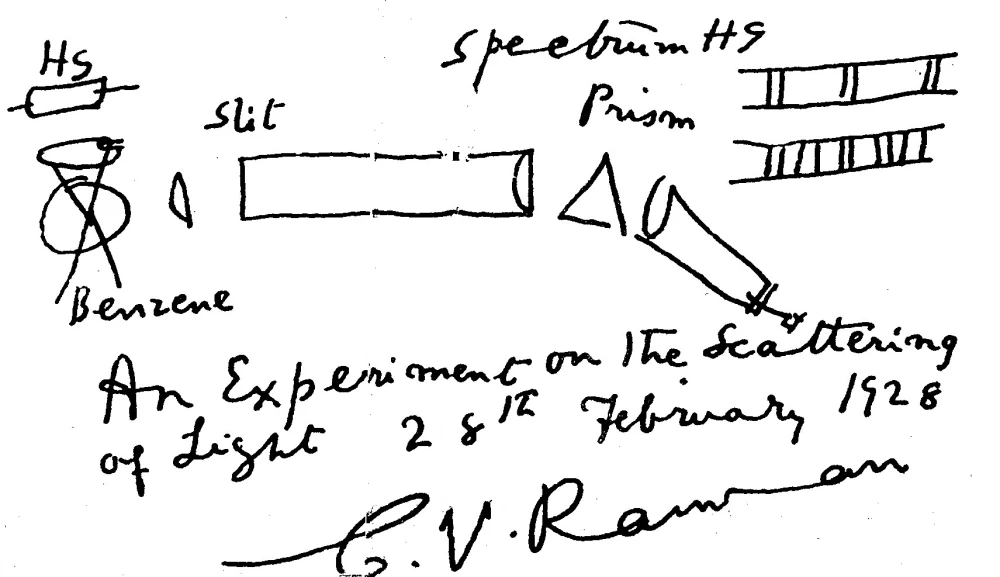 HS
Spectrum HS
Slit
Prism
Benzene
An Experiment on the Scattering
of Light 28th February 1928
C.V. Raman